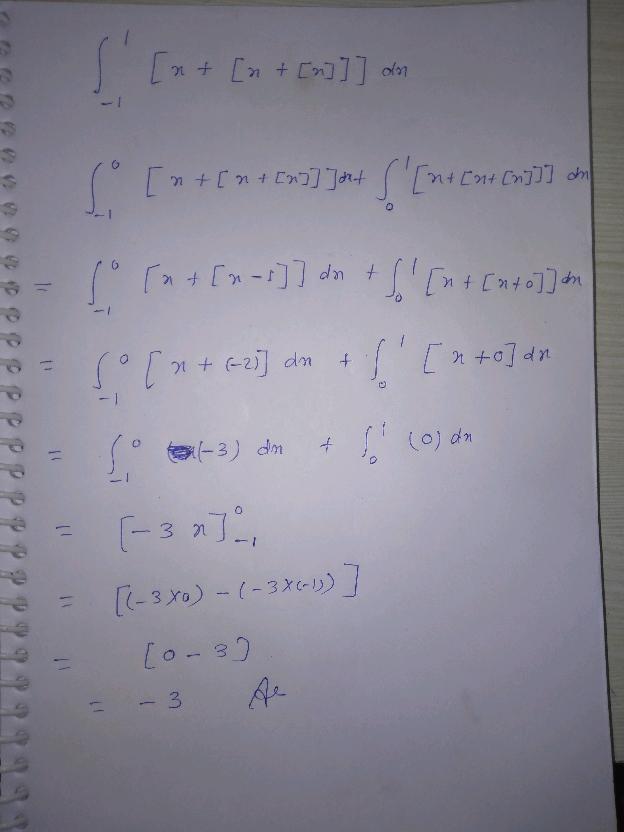 ∫₋₁¹ [x + [x + [x]]] dx
∫₋₁⁰ [x + [x + [x]]] dx + ∫₀¹ [x + [x + [x]]] dx
= ∫₋₁⁰ [x + [x - 1]] dx + ∫₀¹ [x + [x + 0]] dx
= ∫₋₁⁰ [x + (-2)] dx + ∫₀¹ [x + 0] dx
= ∫₋₁⁰ (-3) dx + ∫₀¹ (0) dx
= [-3 x]₋₁⁰
= [(-3×0) - (-3×(-1))]
= [0 - 3]
= -3